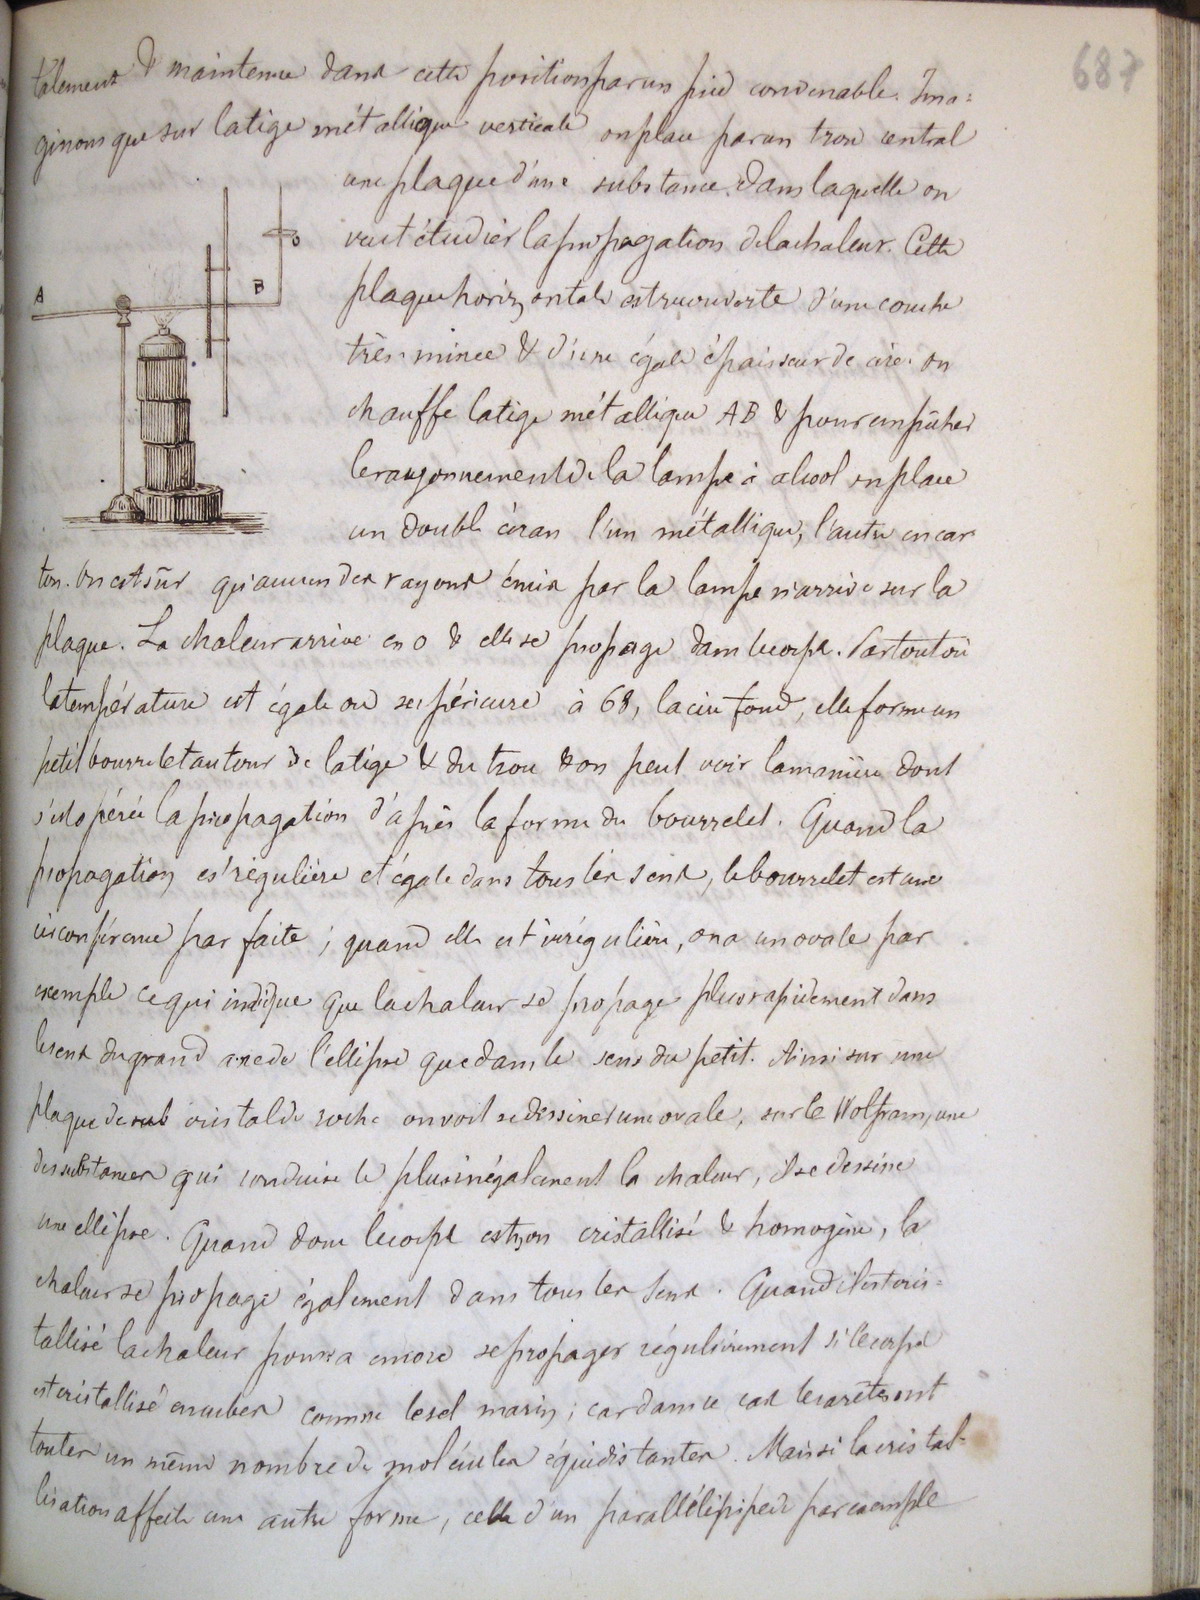 687
talement & maintenue dans cette position par un pied convenable. Ima=
ginons que sur la tige métallique verticale on place par un trou central
une plaque d'une substance dans laquelle on
veut étudier la propagation de la chaleur. Cette
plaque horizontale est recouverte d'une couche
très mince & d'une égale épaisseur de cire. on
chauffe la tige métallique AB & pour empêcher
le rayonnement de la lampe à alcool on place
un double écran l'un métallique, l'autre en car
ton. On est sûr qu'aucun des rayons émis par la lampe n'arrive sur la
plaque. La chaleur arrive en O & elle se propage dans le corps. Partout où
la température est égale ou supérieure à 68, la cire fond, elle forme un
petit bourrelet autour de la tige & du trou & on peut voir la manière dont
s'est opérée la propagation d'après la forme du bourrelet. Quand la
propagation est régulière et égale dans tous les sens, le bourrelet est une
circonférence parfaite ; quand elle est irrégulière, on a un ovale par
exemple ce qui indique que la chaleur se propage plus rapidement dans
le sens du grand axe de l'ellipse que dans le sens du petit. Ainsi sur une
plaque de cristal de roche on voit se dessiner une ovale, sur le Wolfram, une
des substances qui conduise le plus inégalement la chaleur, il se dessine
une ellipse. Quand donc le corps est non cristallisé & homogène, la
chaleur se propage également dans tous les sens. Quand il est cris=
tallisé la chaleur pourra encore se propager régulièrement si le corps
est cristallisé en cubes comme le sel marin ; car dans ce cas les arêtes ont
toutes un même nombre de molécules équidistantes. Mais si la cristal-
lisation affecte une autre forme, celle d'un parallélipipède par exemple
A
B
O